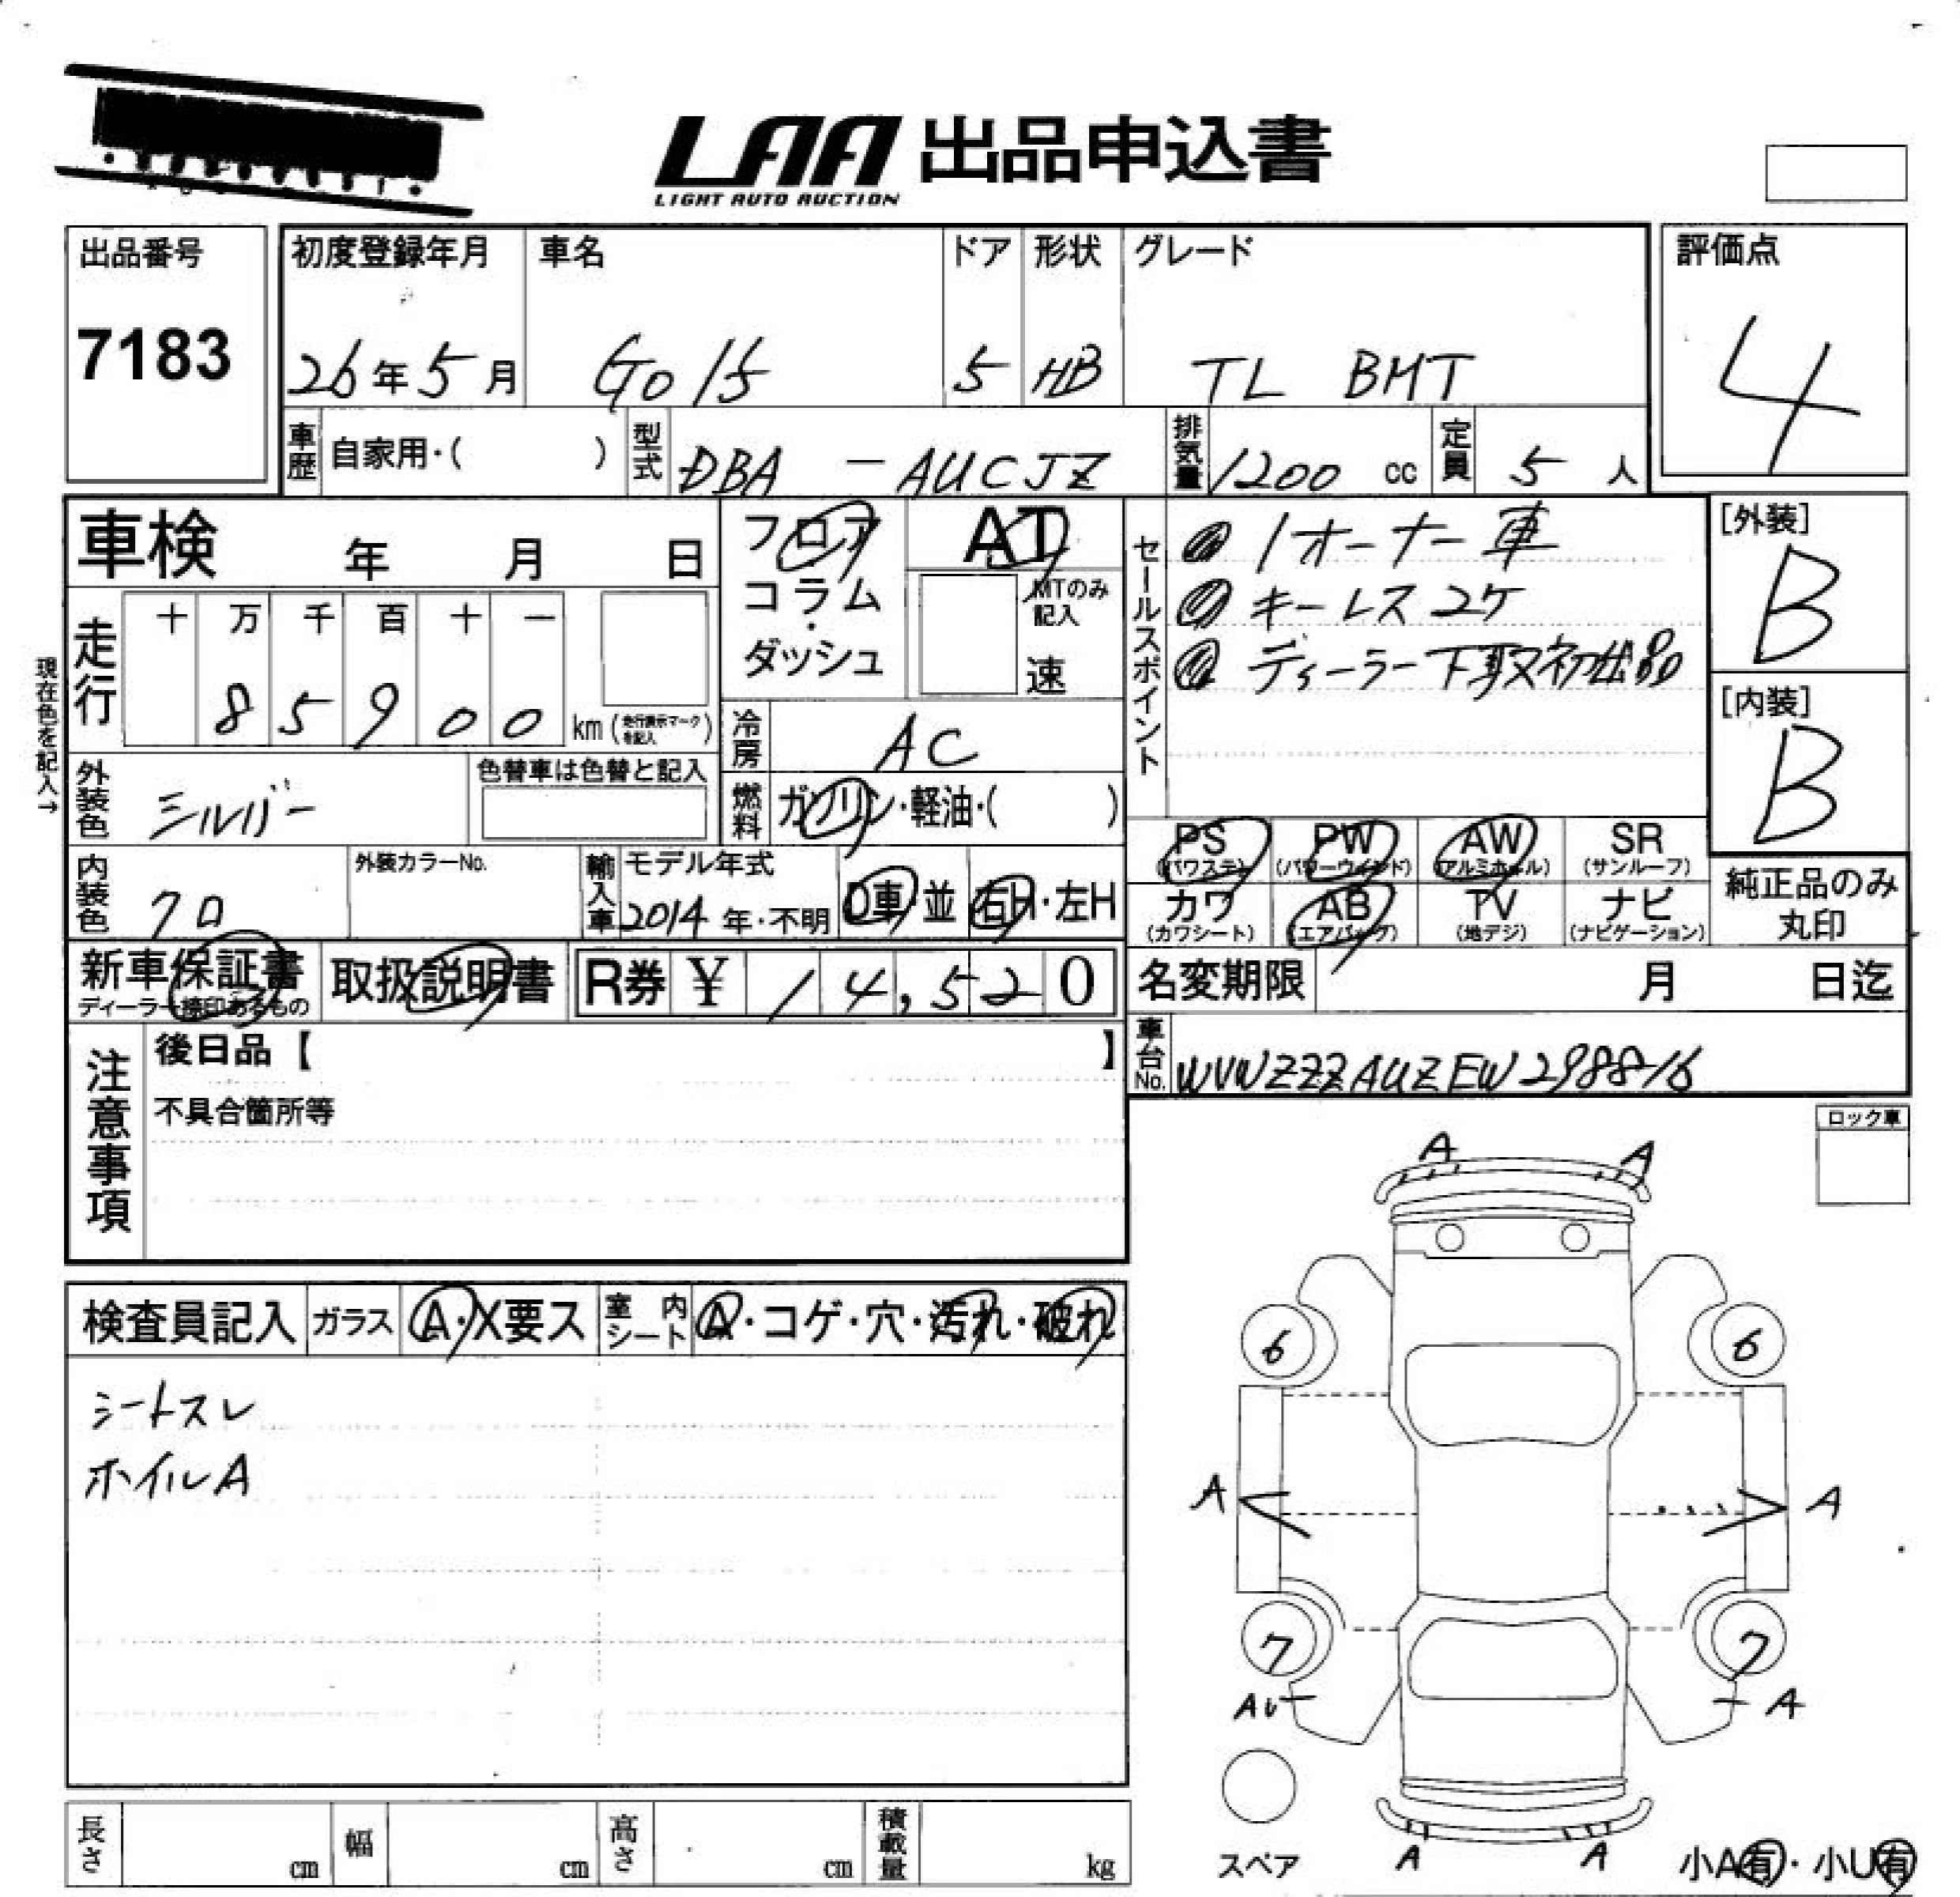 LAA 出品申込書
LIGHT AUTO AUCTION
出品番号
7183
初度登録年月
26年5月
車名
Golf
ドア
5
形状
HB
グレード
TL BMT
評価点
4
車歴 自家用・( )
型式 DBA - AUCJZ
排気量 1200 cc
定員 5 人
車検 年 月 日
フロア
コラム
・
ダッシュ
AT
MTのみ
記入
速
セールスポイント
1オーナー車
キーレス2ケ
ディーラー下取初出品
[外装]
B
[内装]
B
現在色を記入→
走行
十 万 千 百 十 一
8 5 9 0 0 km (走行表示マークを記入)
冷房 AC
外装色 シルバー
色替車は色替と記入
燃料 ガソリン・軽油・( )
PS (パワステ)
PW (パワーウインド)
AW (アルミホイール)
SR (サンルーフ)
カワ (カワシート)
AB (エアバッグ)
TV (地デジ)
ナビ (ナビゲーション)
純正品のみ
丸印
内装色 クロ
外装カラーNo.
輸入車
モデル年式
2014 年・不明
D車・並
右H・左H
新車保証書
ディーラー捺印あるもの
取扱説明書
R券 ¥ 14,520
名変期限 月 日迄
車台No. WVWZZZAUZEW298816
注意事項
後日品【 】
不具合箇所等
ロック車
検査員記入
ガラス A・X要ス
室内シート A・コゲ・穴・汚れ・破れ
シートスレ
ホイルA
A A
6 6
A A
7 7
A
A A
スペア
小A有・小U有
長さ cm
幅 cm
高さ cm
積載量 kg